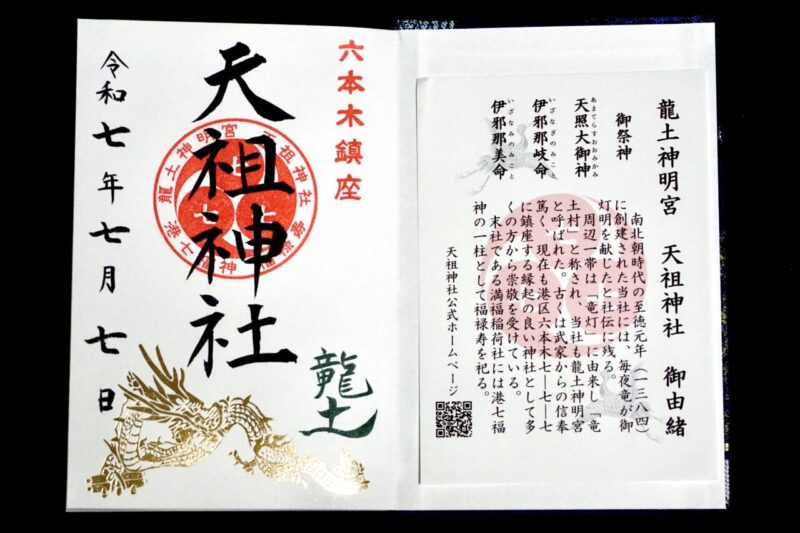 龍土神明宮　天祖神社　御由緒
御祭神
天照大御神
あまてらすおおみかみ
伊邪那岐命
いざなぎのみこと
伊邪那美命
いざなみのみこと
南北朝時代の至徳元年（一三八四）
に創建された当社には、毎夜竜が御
灯明を献じたと社伝に残る。
周辺一帯は「竜灯」に由来し「竜
土村」と称され、当社も龍土神明宮
と呼ばれた。古くは武家からの信奉
篤く、現在も港区六本木七―七―七
に鎮座する縁起の良い神社として多
くの方から崇敬を受けている。
末社である満福稲荷社には港七福
神の一柱として福禄寿を祀る。
天祖神社公式ホームページ
六本木鎮座
天祖神社
龍土神明宮
天祖神社
港七
神
龍土
令和七年七月七日